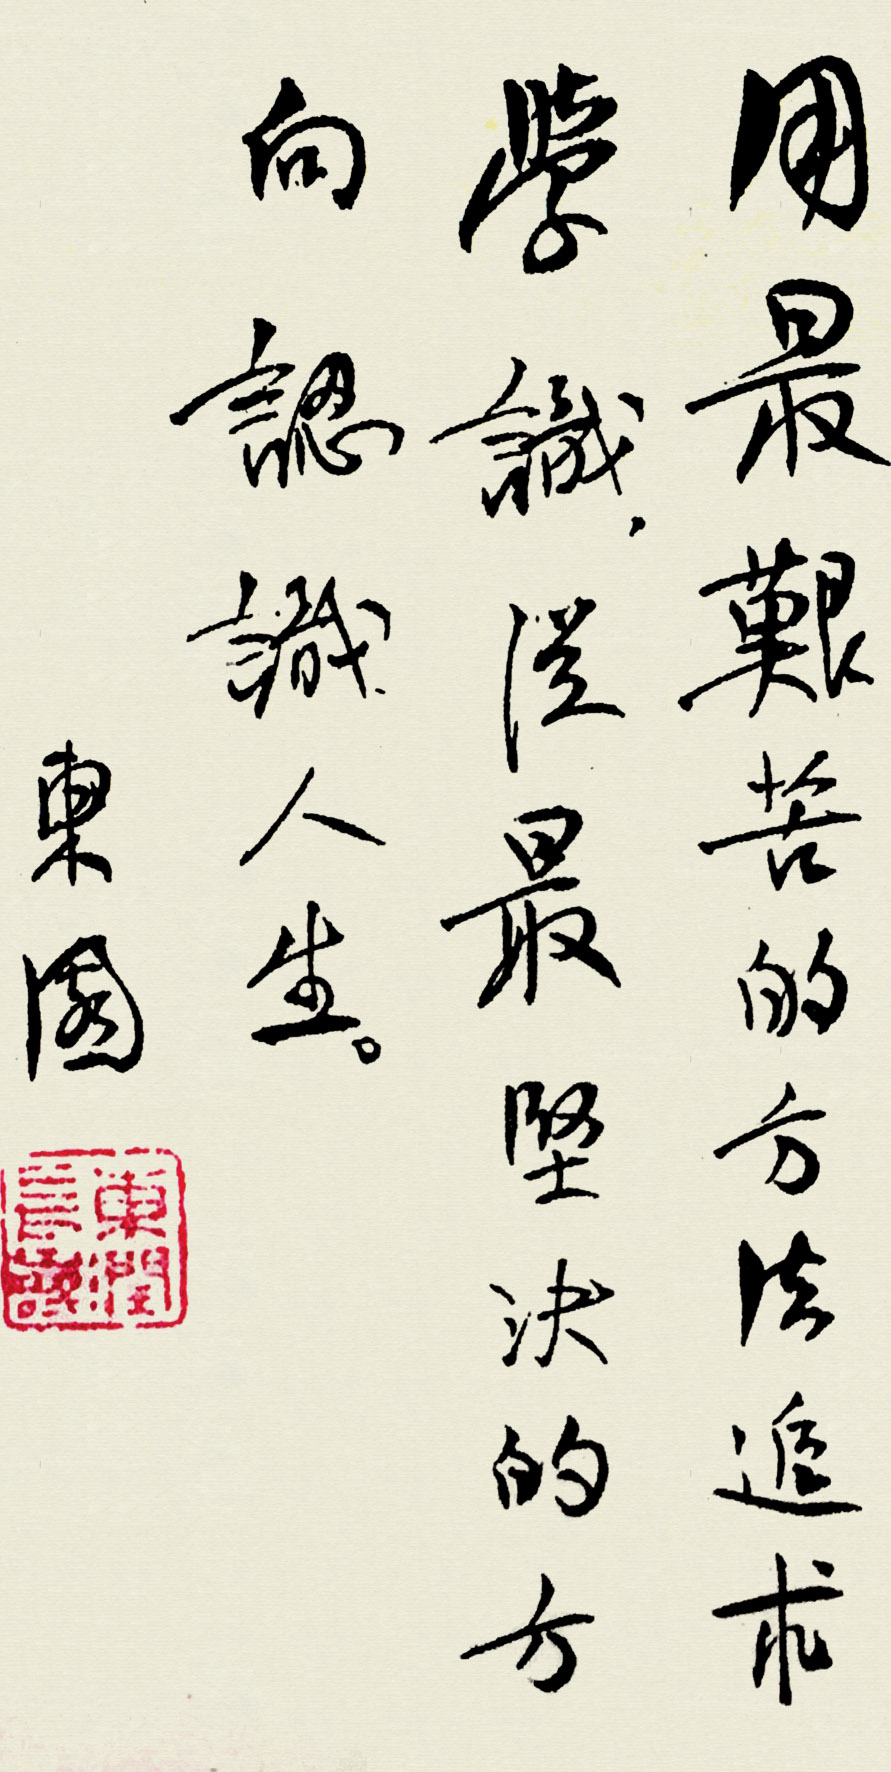 用最艱苦的方法追求
學識，從最堅決的方
向認識人生。
東潤
東潤